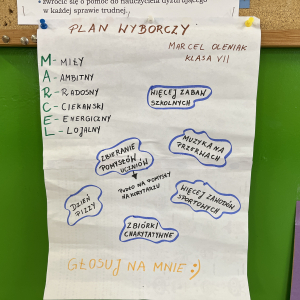 zwrócić się o pomoc do nauczyciela dyżurującego
w każdej sprawie trudnej.
PLAN WYBORCZY
MARCEL OLENIAK
KLASA VII
M - MIŁY
A - AMBITNY
R - RADOSNY
C - CIEKAWSKI
E - ENERGICZNY
L - LOJALNY
WIĘCEJ ZABAW
SZKOLNYCH
MUZYKA NA
PRZERWACH
ZBIERANIE
POMYSŁÓW
UCZNIÓW
PUDŁO NA POMYSŁY
NA KORYTARZU
WIĘCEJ ZAWODÓW
SPORTOWYCH
DZIEŃ
PIZZY
ZBIÓRKI
CHARYTATYWNE
GŁOSUJ NA MNIE :)